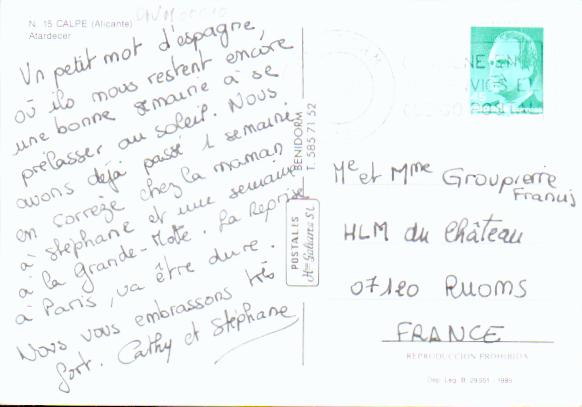 N. 15 CALPE (Alicante)
Atardecer
Un petit mot d'espagne,
où ils nous restent encore
une bonne semaine à se
prélasser au soleil. Nous
avons déjà passé 1 semaine
en corrèze chez la maman
à stéphane et une semaine
à la Grande-Motte. La Reprise
à Paris, va être dure.
Nous vous embrassons très
fort. Cathy et Stéphane
POSTALES
BENIDORM
T. 585 71 52
Me et Mme Groupierre
Francis
HLM du Château
07120 RUOMS
FRANCE
REPRODUCCION PROHIBIDA
Dep. Leg. B. 29.551 - 1985